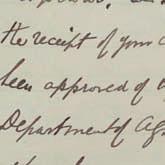 the receipt of your
been approved of
Department of Ag